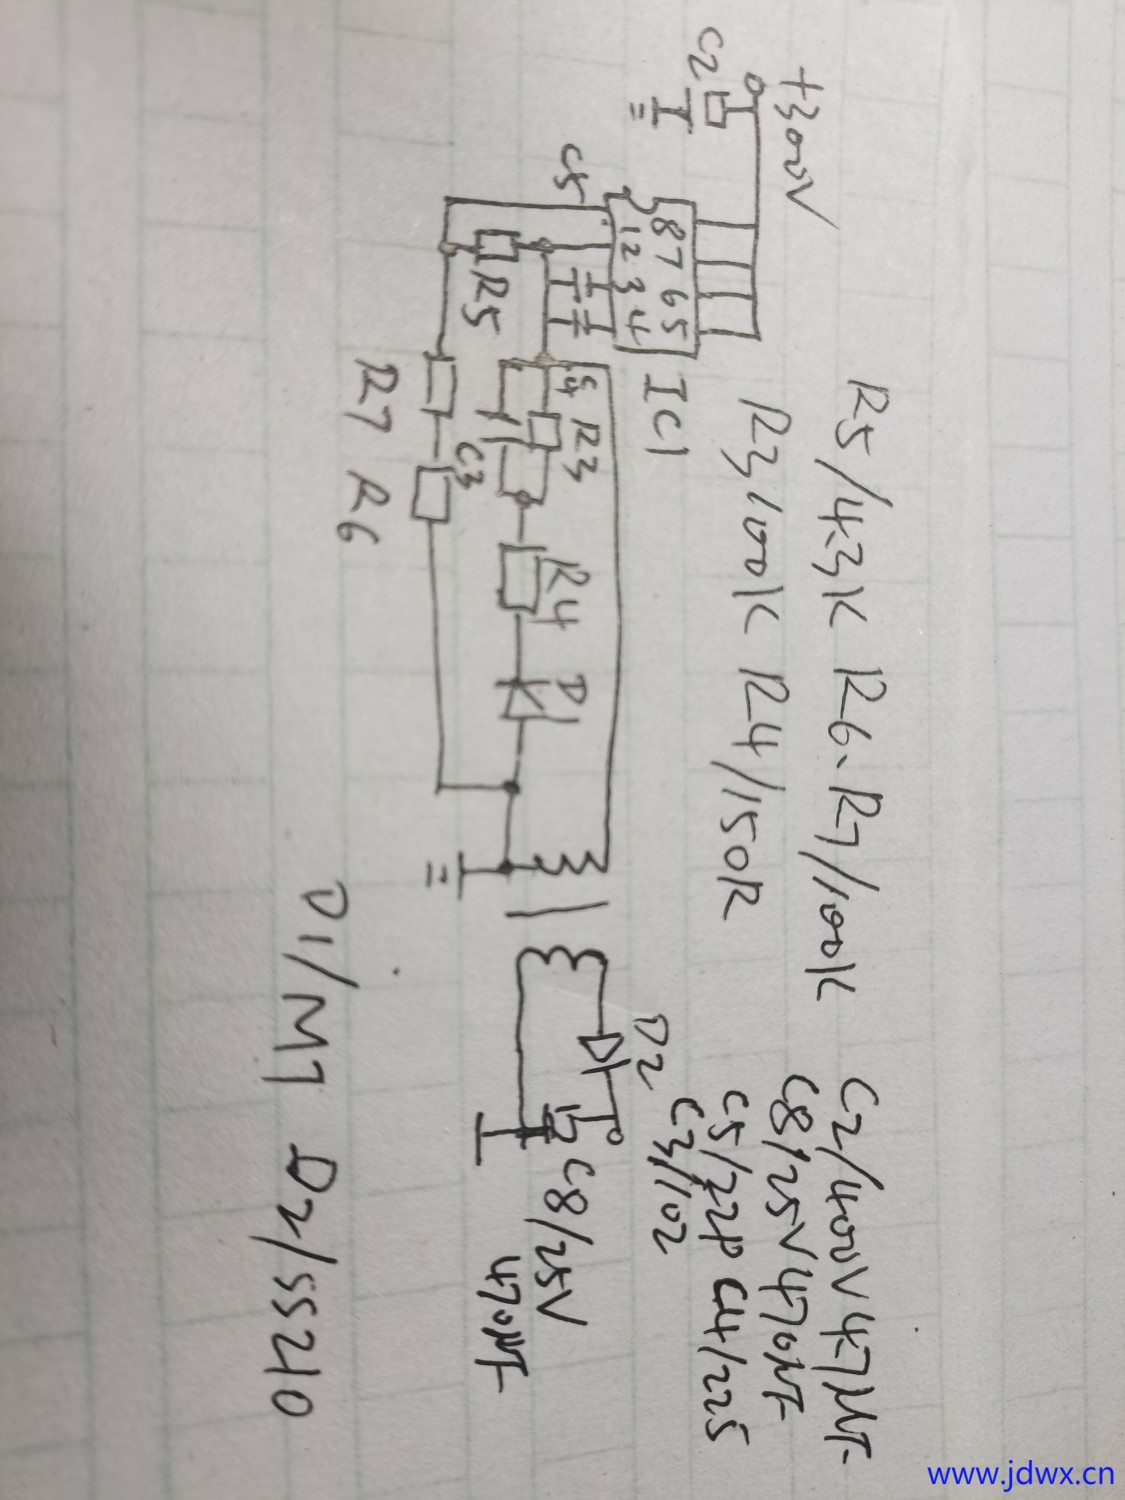 R5/43K R6、R7/100K
R3 100K R4/150R
C2/400V47μF
C8/25V470μF
C5/22P C4/225
C3/102
+300V
C2
C5
8 7 6 5
1 2 3 4
IC1
R5
C4
R3
C3
R4
D1
R7 R6
D2
C8/25V
470μF
D1/M7 D2/SS210
www.jdwx.cn